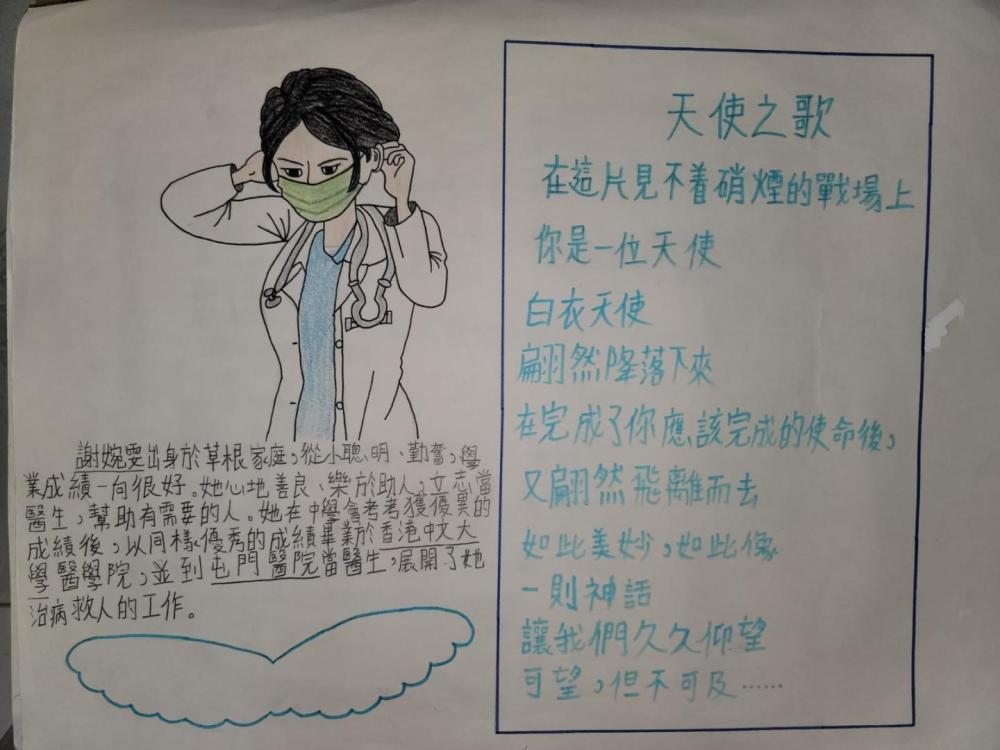 謝婉雯出身於草根家庭，從小聰明、勤奮，學
業成績一向很好。她心地善良、樂於助人，立志當
醫生，幫助有需要的人。她在中學會考考獲優異的
成績後，以同樣優秀的成績畢業於香港中文大
學醫學院，並到屯門醫院當醫生，展開了她
治病救人的工作。
天使之歌
在這片見不着硝煙的戰場上
你是一位天使
白衣天使
翩然降落下來
在完成了你應該完成的使命後，
又翩然飛離而去
如此美妙，如此像
一則神話
讓我們久久仰望
可望，但不可及……